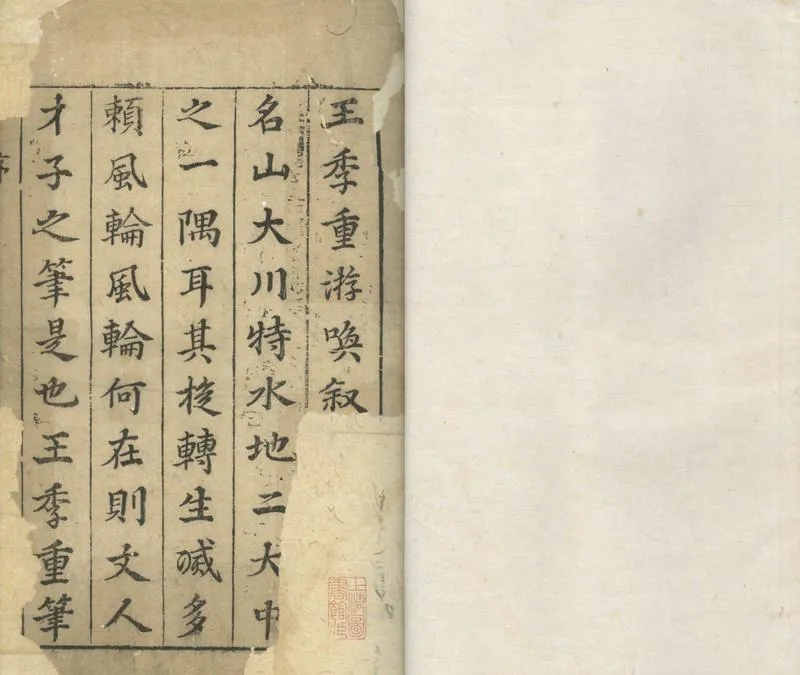 王季重游喚叙
名山大川特水地二大中
之一隅耳其旋轉生滅多
頼風輪風輪何在則文人
才子之筆是也王季重筆
序
上海圖書館藏